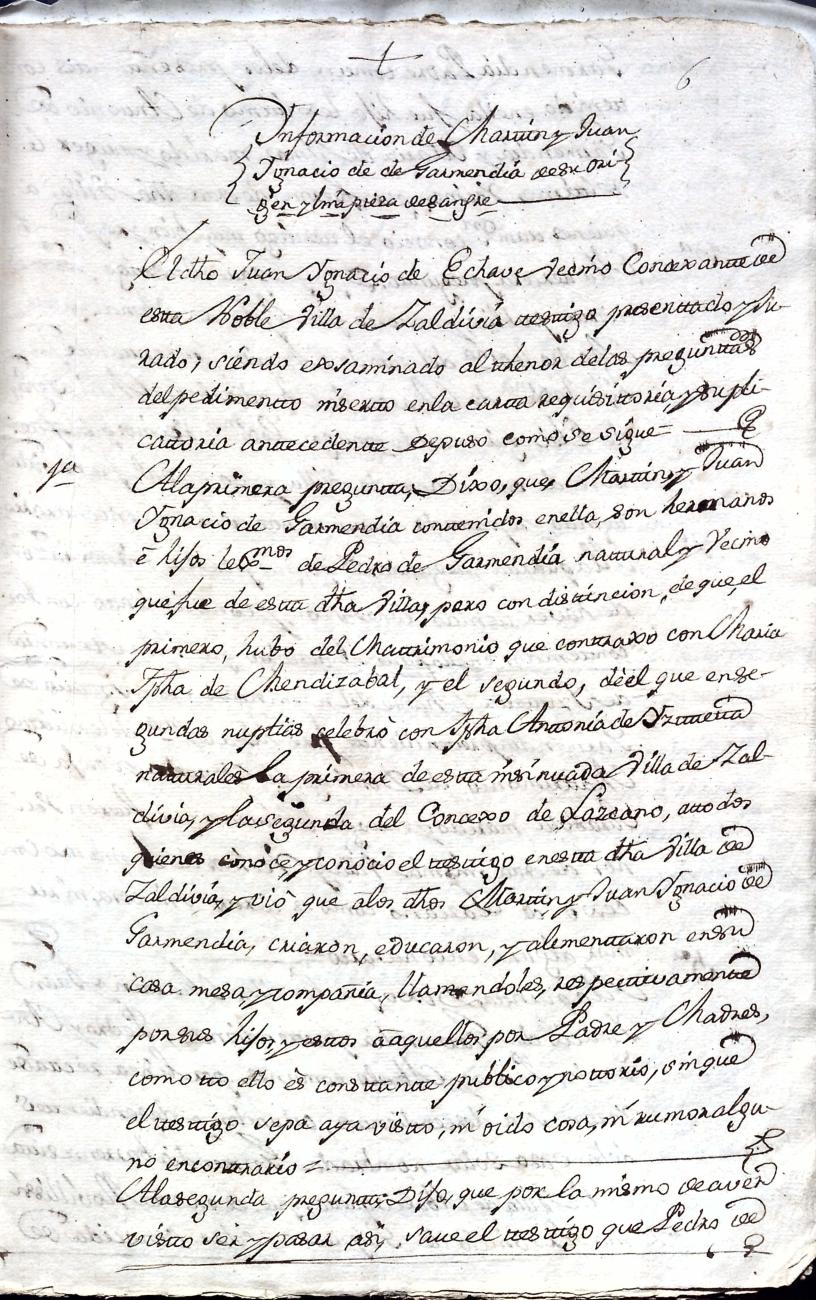 6
Informacion de Martin y Juan
Ygnacio de de Garmendia de su ori
gen y limpieza de sangre
El dho Juan Ygnacio de Echave vecino Concexante de
esta Noble Villa de Zaldivia testigo presenttado y ju-
rado, siendo exsaminado al thenor delas pregunttas
del pedimentto inserto enla cartta requisittoria, y supli-
cattoria anttecedentte Depuso como se sigue
1a
Ala primera preguntta, Dixo, que, Martin, y Juan
Ygnacio de Garmendia conttenidos enella, son hermanos
è hijos lexmos de Pedro de Garmendia natural y Vecino
que fue de estta dha Villa, pero con distincion, de que, el
primero, hubo del Mattrimonio que conttraxo con Maria
Jpha de Mendizabal, y el segundo, dèel que en se-
gundas nuptias celebrò con Jpha Anttonia de Yzttuetta
natturales la primera de estta insinuada Villa de Zal-
divia, y la segunda del Concexo de Lazcano, attodos
quienes conoce y conocio el testtigo en estta dha Villa de
Zaldivia, y viò que alos dhos Martin y Juan Ygnacio de
Garmendia, criaron, educaron, y alimenttaron en su
casa mesa, y compañia, llamandoles, respectivamente
por sus hijos, y esttos à aquellos, por Padre y Madres,
como tto ello ès consttante publico y nottorio, sin que
el testtigo sepa aya vistto, ni oido cosa, ni rumor algu-
no en conttrario
Ala segunda preguntta, Dijo, que por la mismo de aver
vistto ser y pasar asi, save el testtigo que Pedro de